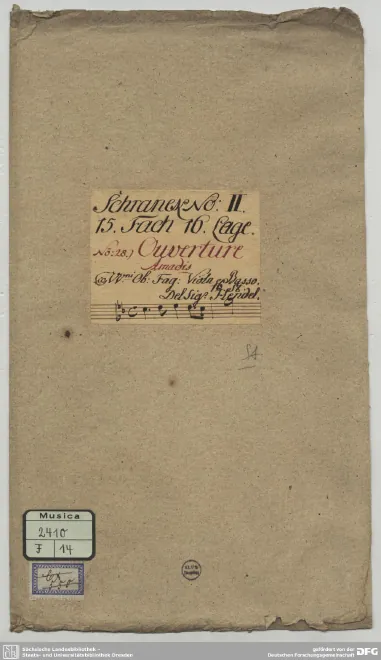 Schranck No: II.
15. Fach 16. Lage.
No: 28.) Ouverture
Amadis
co VVni Ob: Fag: Viola e Basso.
Del Sigr. Hendel.
Musica
2410
F 14
Sächsische Landesbibliothek -
Staats- und Universitätsbibliothek Dresden
gefördert von der
Deutschen Forschungsgemeinschaft DFG